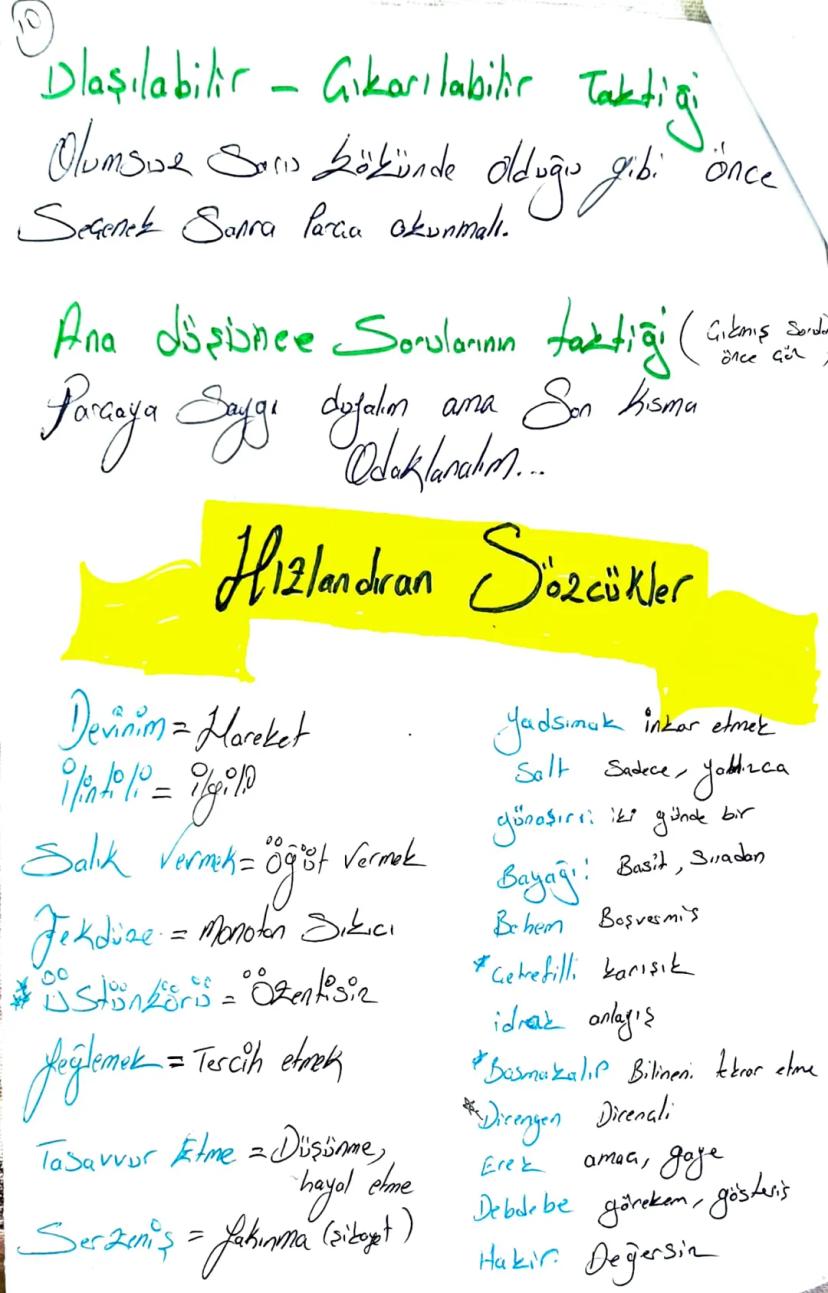 10
Ulaşılabilir - Çıkarılabilir Taktiği
Olumsuz Soru kökünde olduğu gibi önce
Seçenek Sonra Parça okunmalı.
Ana düşünce Sorularının taktiği ( Çıkmış
önce Çöz
Parçaya Saygı duyalım ama Son kısma
Odaklanalım...
Hızlandıran Sözcükler
Devinim = Hareket
İlintili = ilgili
Salık vermek = öğüt vermek
Tekdüze = Monoton Sıkıcı
* Üstünkörü = Özentisiz
Yeğlemek = Tercih etmek
Tasavvur Etme = Düşünme,
hayal etme
Serzeniş = Yakınma (şikayet)
Yadsımak inkar etmek
Salt Sadece, yalnızca
günaşırı: iki günde bir
Bayağı: Basit, Sıradan
Behem
* Çetrefilli karışık
idrak anlayış
* Basmakalıp Bilineni tekrar etme
* Direngen Dirençli
Erek amaç, gaye
Debdebe görekem, gösteriş
Hakir Değersiz